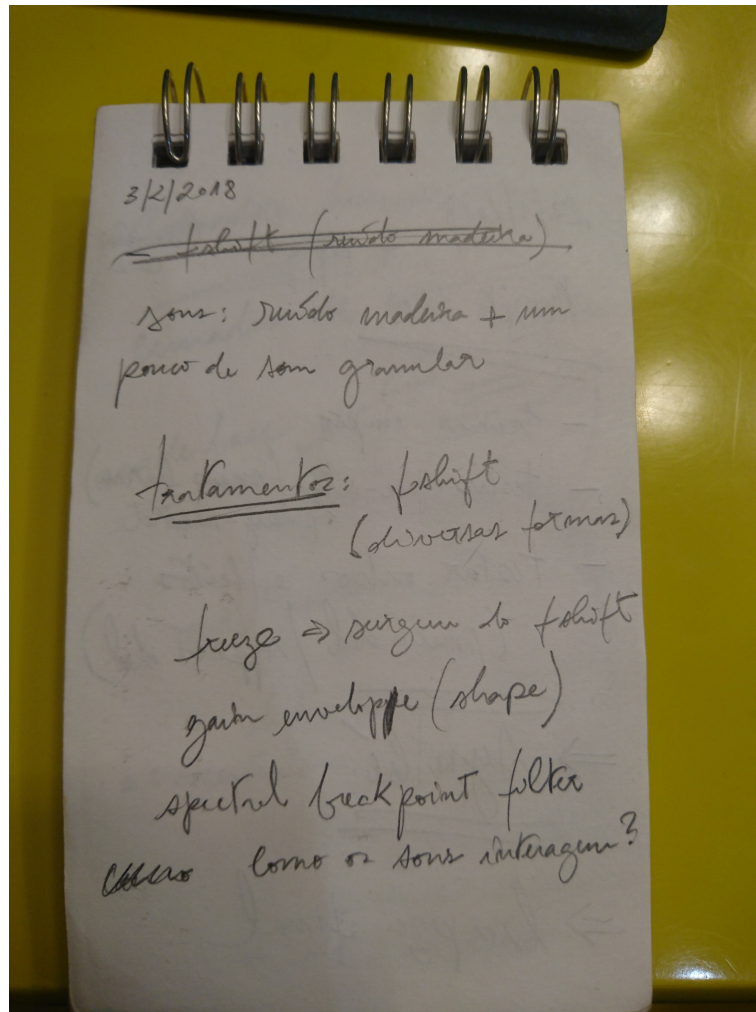 3/2/2018
- fshift (ruído madeira)
sons: ruído madeira + um
pouco de som granular
tratamentos: fshift
(diversas formas)
freeze ⇒ surgem do fshift
gain enveloppe (shape)
spectral breakpoint filter
como os sons interagem?